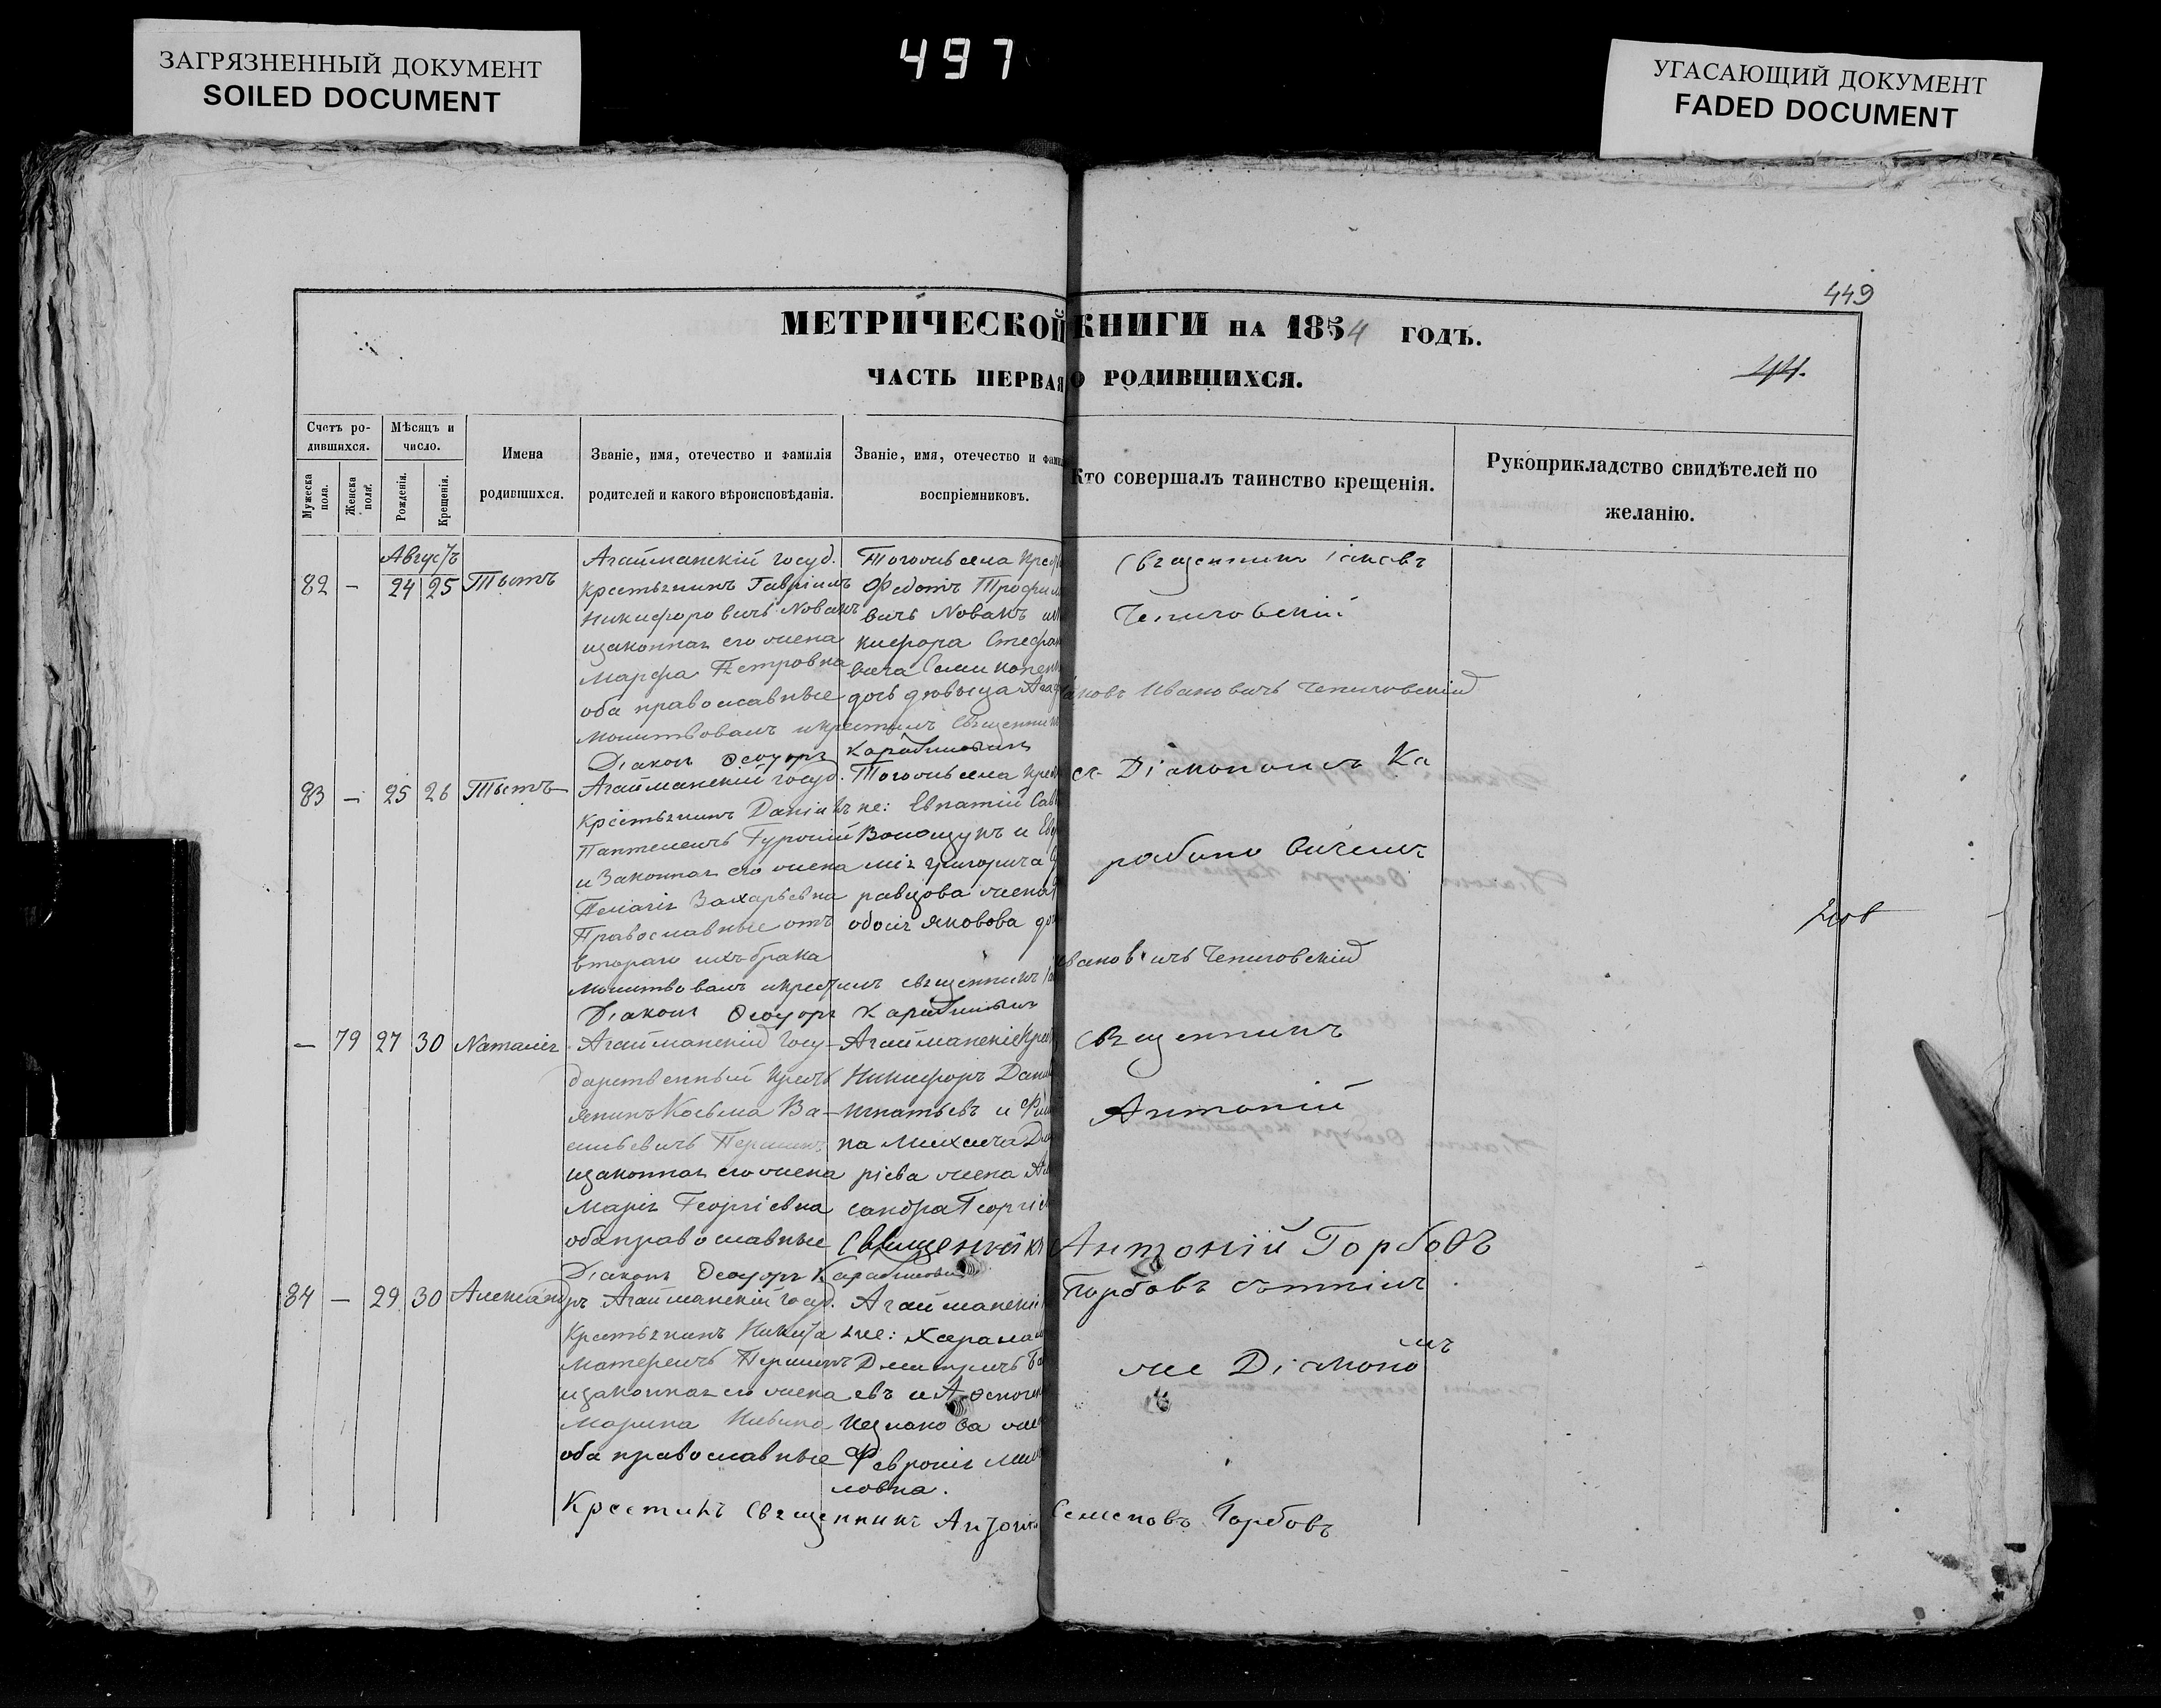 ЗАГРЯЗНЕННЫЙ ДОКУМЕНТ
SOILED DOCUMENT
497
УГАСАЮЩИЙ ДОКУМЕНТ
FADED DOCUMENT
449
МЕТРИЧЕСКОЙ КНИГИ НА 1854 ГОДЪ.
ЧАСТЬ ПЕРВАЯ О РОДИВШИХСЯ.
44.
Счетъ ро-
дившихся.
Мужеска пола.
Женска пола.
Мѣсяцъ и
число.
Рожденія.
Крещенія.
Имена
родившихся.
Званіе, имя, отечество и фамилія
родителей и какого вѣроисповѣданія.
Званіе, имя, отечество и фами
воспріемниковъ.
Кто совершалъ таинство крещенія.
Рукоприкладство свидѣтелей по
желанію.
Августъ
82 - 24 25 Титъ
Агайманскій госуд.
крестьянинъ Гавріилъ
Никифоровичъ Новакъ
и законная его жена
Марфа Петровна
оба православные
Тогожъ села Крест
Федотъ Трофим
вичъ Новакъ и
кифора Стефан
вича
дочь дѣвица Ага
Священникъ Іаковъ
Чепиговскій
Молитвовалъ и крестилъ Священникъ Іаковъ Ивановичъ Чепиговскій
Діаконъ Ѳеодоръ Карабиневичъ
83 - 25 26 Титъ
Агайманскій госуд.
крестьянинъ Даніилъ
и Законная его жена
Пелагія Захарьевна
Православные отъ
втораго ихъ брака
Тогожъ села Крес
не: Евпатій Сав
Волощукъ и Ев
мія Григорича
жена
Яковова до
съ Діакономъ Ка
рабиновичемъ
Молитвовалъ и крестилъ священникъ Іа Ивановичъ Чепиговскій
Діаконъ Ѳеодоръ Карабиневичъ
- 79 27 30 Наталія
Агайманскій Госу-
дарственный крестья
янинъ Косьма Ва-
сильевичъ Першинъ
и законная его жена
Марія Георгіевна
оба православные
Агайманскіе Крес
Никифоръ Дани
Игнатьевъ и Фи
па Михеича
ріева жена Але
сандра Георгіе
Священникъ
Антоній
Священникъ Антоній Горбовъ
Діаконъ Ѳеодоръ Карабиневичъ
84 - 29 30 Александръ
Агайманскій госуд.
Крестьянинъ Никита
Першинъ
и законная его жена
Марина
оба православные
Агайманскі
не:
Дмитричъ
евъ и
жен
Февронія
ловна.
Горбовъ съ тѣмъ
же Діакономъ
Крестилъ Священникъ Антоній Семеновъ Горбовъ